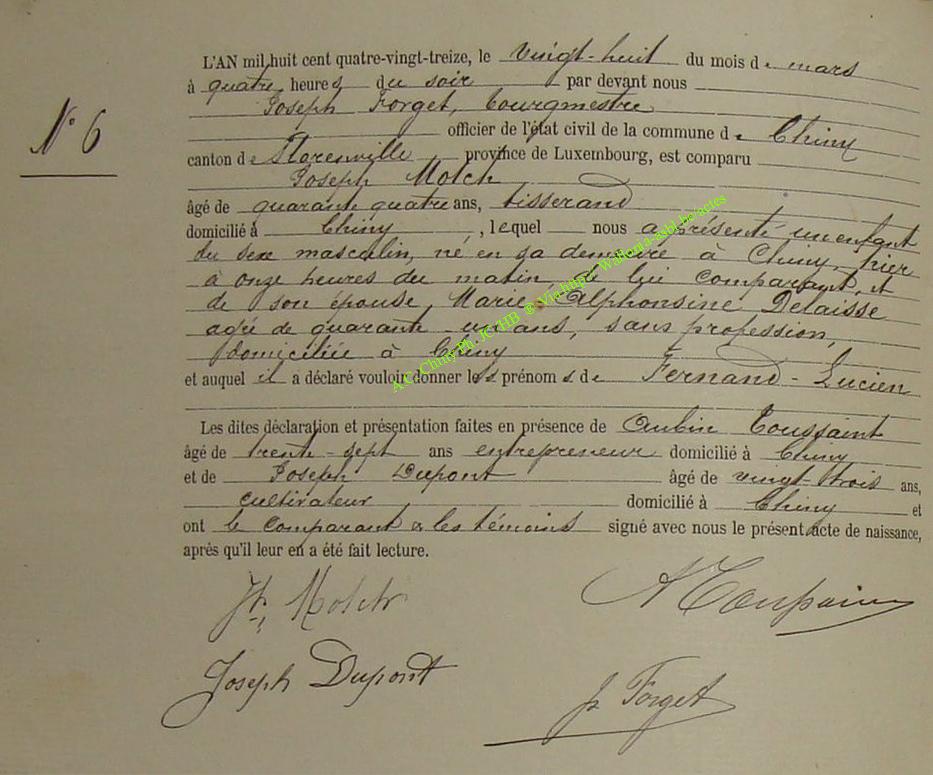 L'AN mil huit cent quatre-vingt-treize, le vingt-huit du mois de mars
à quatre heures du soir par devant nous
Joseph Forget, bourgmestre
N° 6
officier de l'état civil de la commune de Chiny
canton de Florenville province de Luxembourg, est comparu
Joseph Molch
âgé de quarante quatre ans, tisserand
domicilié à Chiny, lequel nous a présenté un enfant
du sexe masculin, né en sa demeure à Chiny, hier
à onze heures du matin, de lui comparant, et
de son épouse, Marie Alphonsine Delaisse
agée de quarante-un ans, sans profession,
domiciliée à Chiny
et auquel il a déclaré vouloir donner les prénoms de Fernand-Lucien
Les dites déclaration et présentation faites en présence de Aubin Toussaint
âgé de trente-sept ans entrepreneur domicilié à Chiny
et de Joseph Dupont âgé de vingt-trois ans,
cultivateur domicilié à Chiny et
ont le comparant & les témoins signé avec nous le présent acte de naissance,
après qu'il leur en a été fait lecture.
Jh. Molch
A Toussaint
Joseph Dupont
J Forget
A.C. Chiny Ph. JC-HB @ Via http: Wallonia-asbl.be/actes